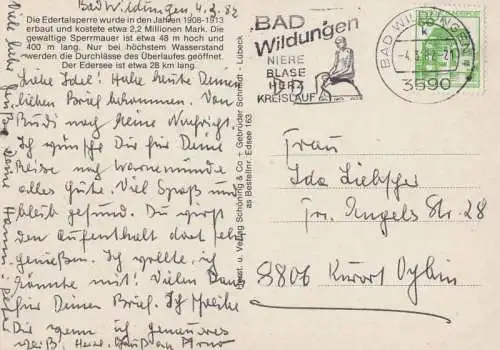 Bad Wildungen, 4.3.82
Die Edertalsperre wurde in den Jahren 1908-1913
erbaut und kostete 2,2 Millionen Mark. Die
gewaltige Sperrmauer ist etwa 48 m hoch und
400 m lang. Nur bei höchstem Wasserstand
werden die Durchlässe des Überlaufes geöffnet.
Der Edersee ist etwa 28 km lang.
Liebe Ida! Habe heute Deinen
lieben Brief bekommen. Von
Rudi noch keine Nachricht.
Ich wünsche Dir für Deine
Reise nach Warnemünde
alles Gute. Viel Spaß und
bleib gesund. Du wirst
den Aufenthalt dort sehr
genießen. Ich wollte, ich
könnte mit! Vielen Dank
für Deinen Brief. Ich schreibe
Dir wenn ich genaueres
weiß. Herzl. Gruß an Arno
Viele liebe Grüße Deine Hanni
Herst. u. Verlag Schöning & Co + Gebrüder Schmidt - Lübeck
as Bestellnr. Edsee 163
BAD
Wildungen
NIERE
BLASE
HERZ
KREISLAUF
BAD WILDUNGEN 1
3590
Frau
Ida Liebscher
Fr. Engels Str. 28
8806 Kurort Oybin